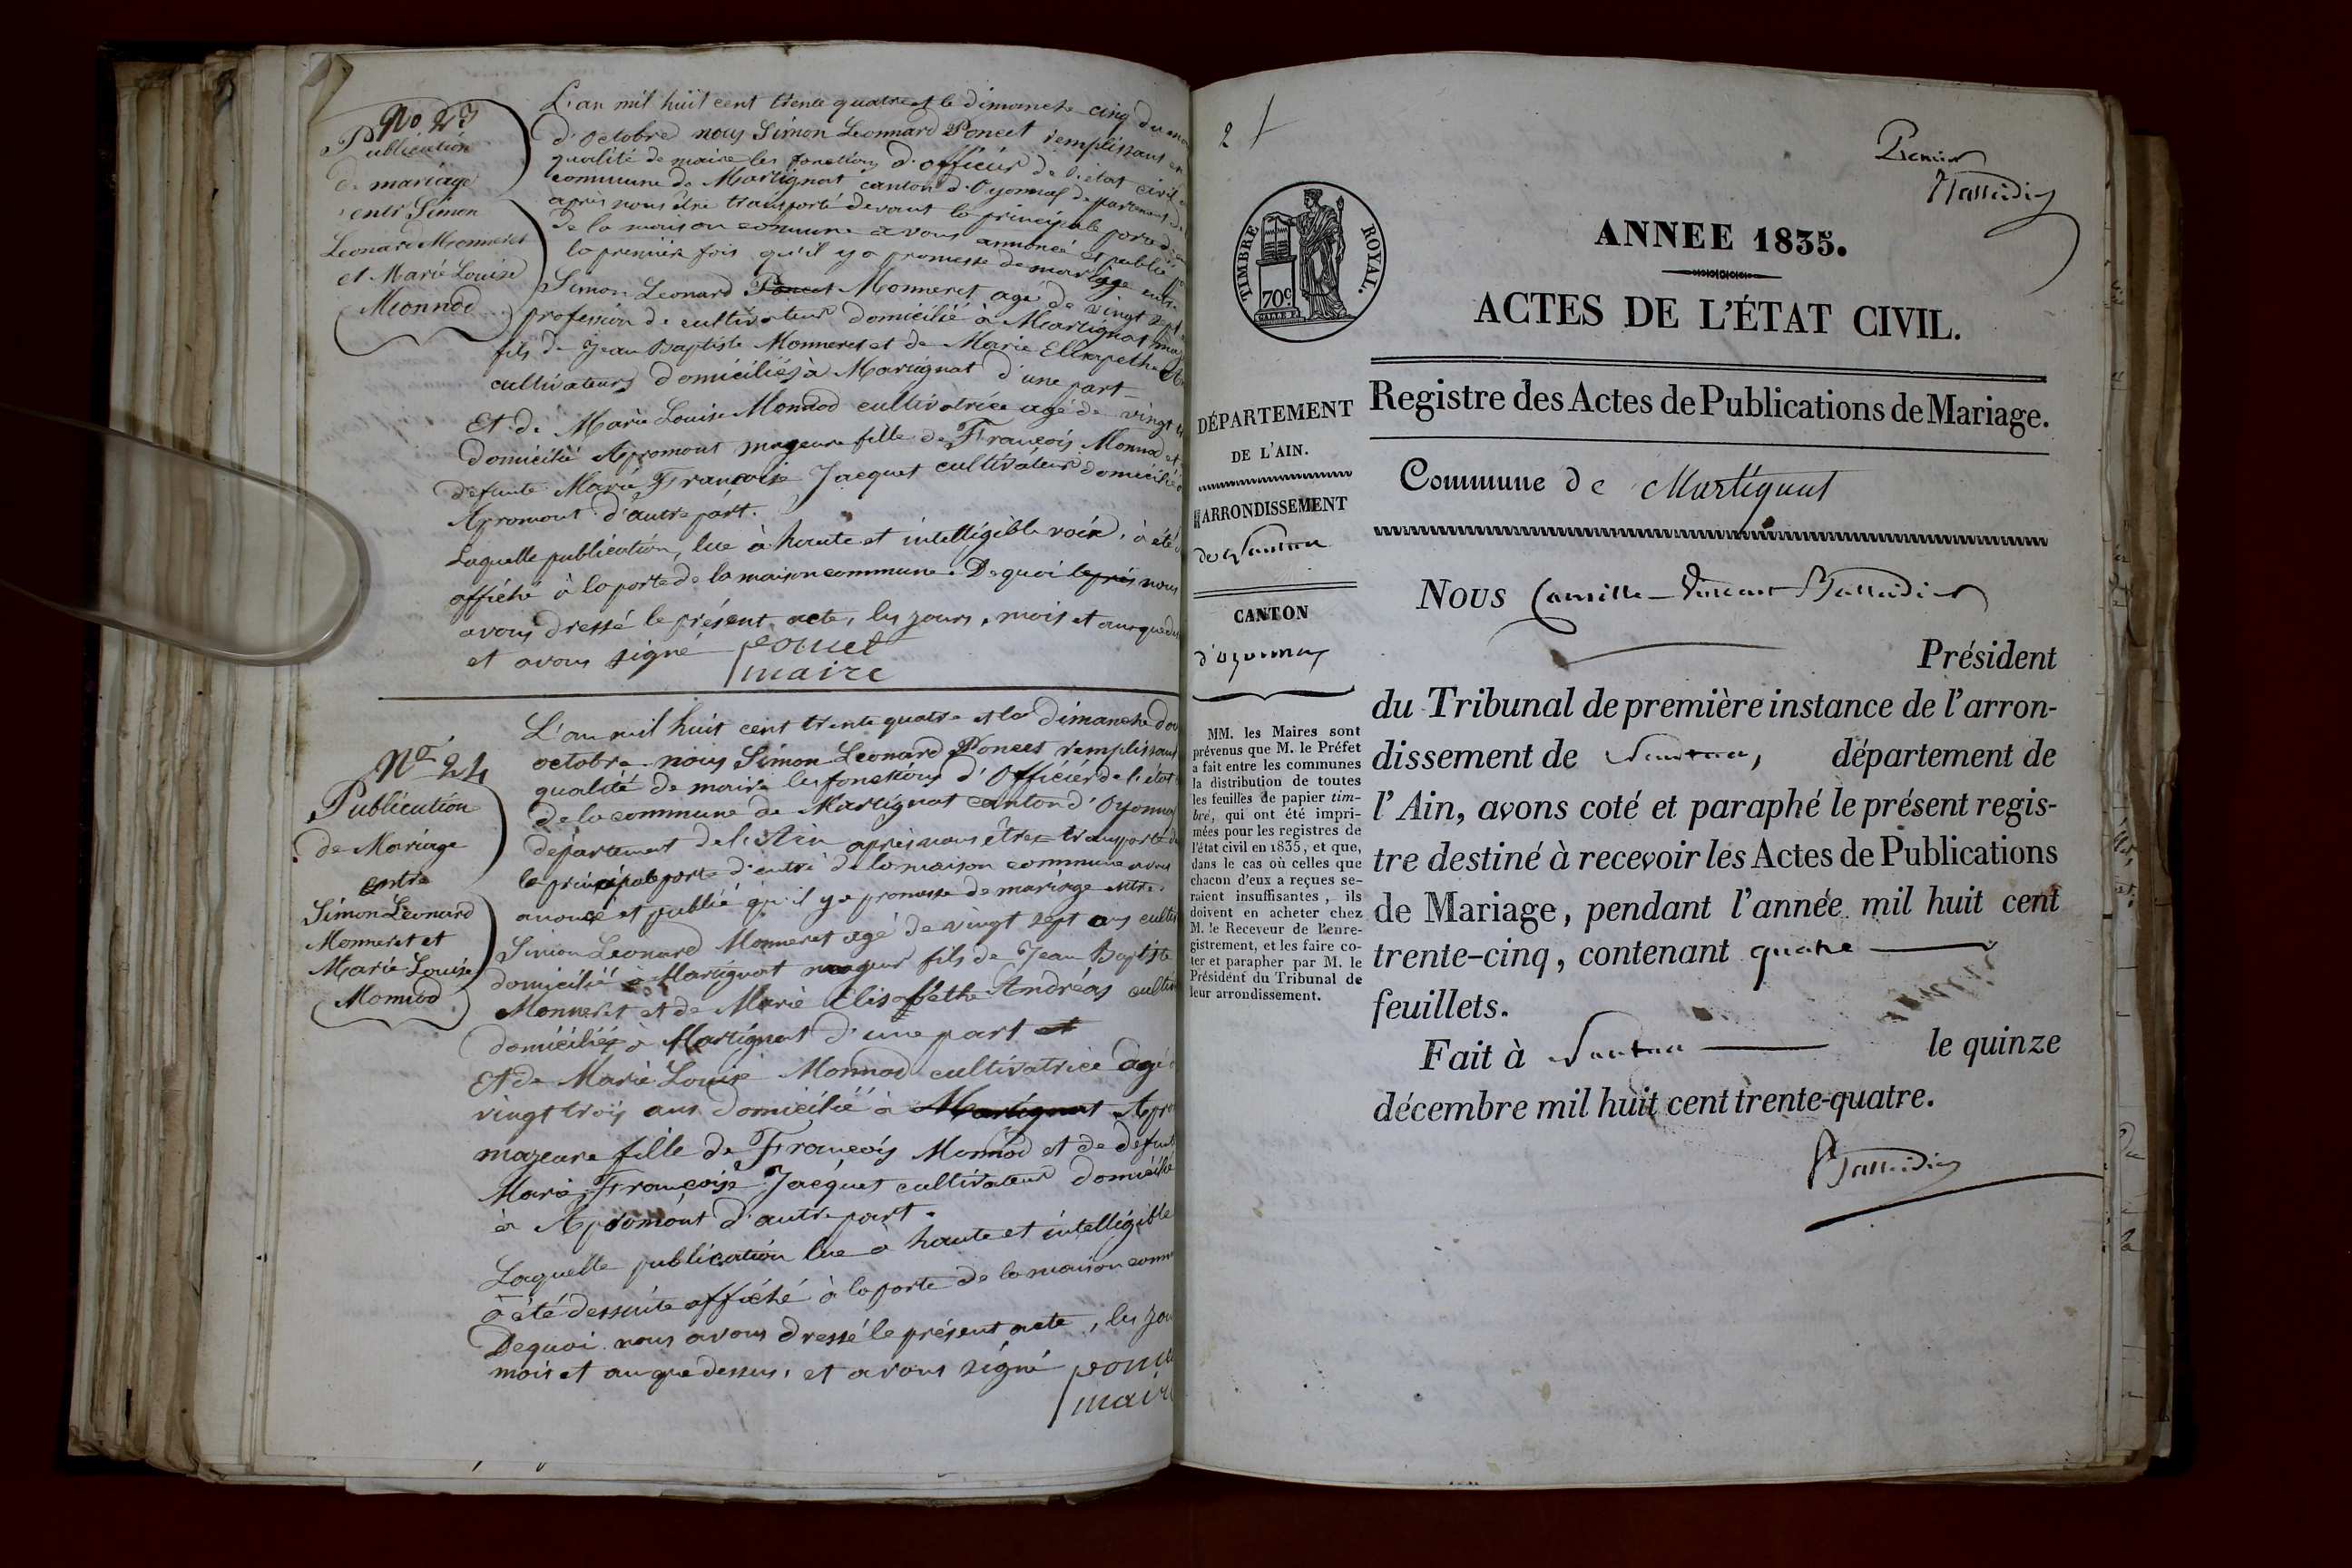 No 23
Publication
de mariage
entr Simon
Leonard Monneret
et Marie Louise
Monnod
L'an mil huit cent trente quatre et le dimanche cinq du
d'Octobre nous Simon Leonnard Poncet remplissant en
qualité de maire les fonctions d'officier de l'état civil
commune de Martignat canton d'Oyonnax departement de
après nous être transporté devant la principale porte d'
de la maison commune avons annoncé et publié
la première fois qu'il y a promesse de mariage entre
Simon Leonard Poncet Monneret agé de vingt sept
profession de cultivateur domicilié à Martignat
fils de Jean Baptiste Monneret et de Marie
cultivateurs domiciliés à Martignat d'une part
Et de Marie Louise Monnod cultivatrice agé de vingt
domicilié Apromont majeure fille de François Monnod et
defunte Marie Françoise Jacquet cultivateur domicilié
Apromont d'autre part.
Laquelle publication, lue à haute et intelligible voix, à été
affiché à la porte de la maison commune. De quoi nous
avons dressé le présent acte, les jours, mois et an que
et avons signé Poncet
maire
No 24
Publication
de Mariage
entre
Simon Leonard
Monneret et
Marie Louise
Monnod
L'an mil huit cent trente quatre et le dimanche
octobre nous Simon Leonard Poncet remplissant
qualité de maire les fonctions d'Officier de l'état
de la commune de Martignat canton d'Oyonnax
departement de l'Ain après nous être transporté
la principale porte d'entré de la maison commune avons
anoncé et publié qu'il y a promesse de mariage entre
Simon Leonard Monneret agé de vingt sept ans
domicilié à Martignat majeur fils de Jean Baptiste
Monneret et de Marie Elisabethe Andréas
domiciliés à Martignat d'une part et
Et de Marie Louise Monnod cultivatrice agé
vingt trois ans domicilié à Martignat
majeure fille de François Monnod et de
Marie Françoise Jacquet cultivateur domicilié
à Apromont d'autre part.
Laquelle publication lue à haute et intelligible
à été dessuite affiché à la porte de la maison
De quoi nous avons dressé le présent acte, les
mois et an que dessus, et avons signé
maire
2
Premier
TIMBRE ROYAL.
70c.
ANNEE 1835.
ACTES DE L'ÉTAT CIVIL.
Registre des Actes de Publications de Mariage.
DÉPARTEMENT
DE L'AIN.
ARRONDISSEMENT
de Nantua
CANTON
d'oyonnax
MM. les Maires sont
prévenus que M. le Préfet
a fait entre les communes
la distribution de toutes
les feuilles de papier tim-
bré, qui ont été impri-
mées pour les registres de
l'état civil en 1835, et que,
dans le cas où celles que
chacun d'eux a reçues se-
raient insuffisantes, ils
doivent en acheter chez
M. le Receveur de l'enre-
gistrement, et les faire co-
ter et parapher par M. le
Président du Tribunal de
leur arrondissement.
Commune de Martignat
Nous Camille Vincent
Président
du Tribunal de première instance de l'arron-
dissement de Nantua, département de
l'Ain, avons coté et paraphé le présent regis-
tre destiné à recevoir les Actes de Publications
de Mariage, pendant l'année mil huit cent
trente-cinq, contenant quatre
feuillets.
Fait à Nantua le quinze
décembre mil huit cent trente-quatre.